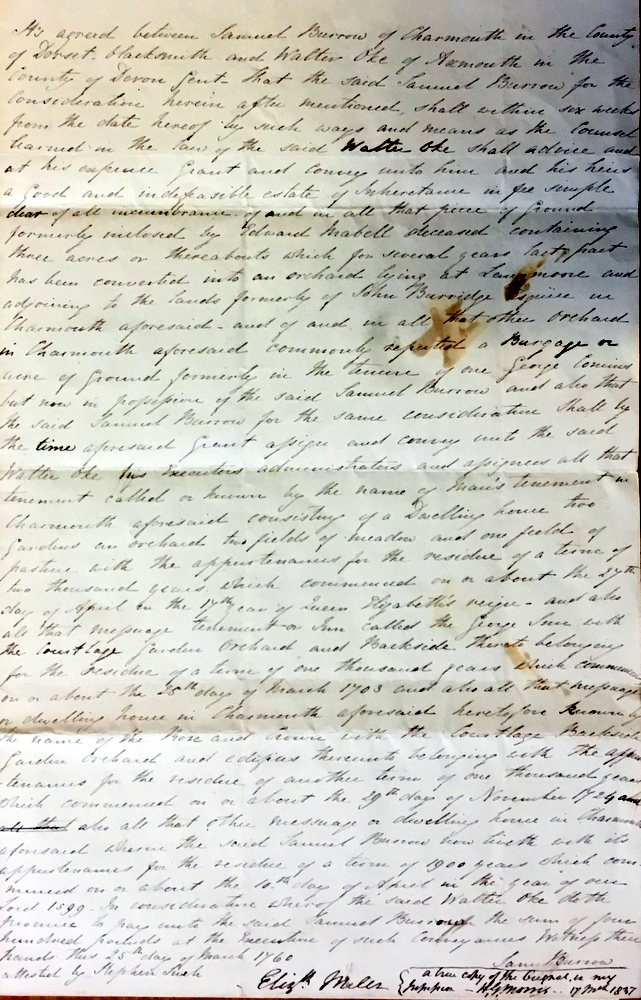 It's agreed between Samuel Burrow of Charmouth in the County
of Dorset blacksmith and Walter Oke of Axmouth in the
County of Devon Gent - that the said Samuel Burrow for the
Consideration herein after mentioned, shall within six weeks
from the date hereof by such ways and means as the Counsel
learned in the law of the said Walter Oke shall advice and
at his expence Grant and Convey unto him and his heirs
a Good and indefeasible estate of Inheritance in fee simple
clear of all incumbrance of and in all that piece of Ground
formerly inclosed by Edward Mabell deceased containing
three acres or thereabouts which for several years last past
has been converted into an orchard lying at Langmoore and
adjoining to the lands formerly of John Burridge Esquire in
Charmouth aforesaid - and of and in all that other Orchard
in Charmouth aforesaid commonly reputed a Burgage or
acre of Ground formerly in the tenure of one George
but now in possession of the said Samuel Burrow and also that
the said Samuel Burrow for the same consideration shall by
the time aforesaid Grant assign and convey unto the said
Walter Oke his Executors administrators and assignees all that
tenement called or known by the name of tenement in
Charmouth aforesaid consisting of a Dwelling house two
Gardens an orchard two fields of meadow and one field of
pasture with the appurtenances for the residue of a terme of
two thousand years which commenced on or about the 27th
day of April in the 17th year of Queen Elizabeth's reign - and also
all that messuage tenement or Inn called the George Inn with
the Courtlage Garden Orchard and Backside thereto belonging
for the residue of a terme of one thousand years which commenced
on or about the 25th day of March 1703 and also all that messuage
or dwelling house in Charmouth aforesaid heretofore known by
the name of the Rose and Crown with the Courtlage Backside
Garden orchard and edifices thereunto belonging with the appur
tenances for the residue of another term of one thousand years
which commenced on or about the 29th day of November 1724 and
all that also all that other messuage or dwelling house in Charmouth
aforesaid wherein the said Samuel Burrow now liveth with its
appurtenances for the residue of a term of 1900 years which com
menced on or about the 10th day of April in the year of our
Lord 1599 - In consideration whereof the said Walter Oke doth
promise to pay unto the said Samuel Burrow the sum of four
hundred pounds at the Execution of such Conveyances Witness their
hands this 25th day of March 1760
Samuel Burrow
attested by Stephen
Elizth Miller
a true copy of the original in my
possession - 1837